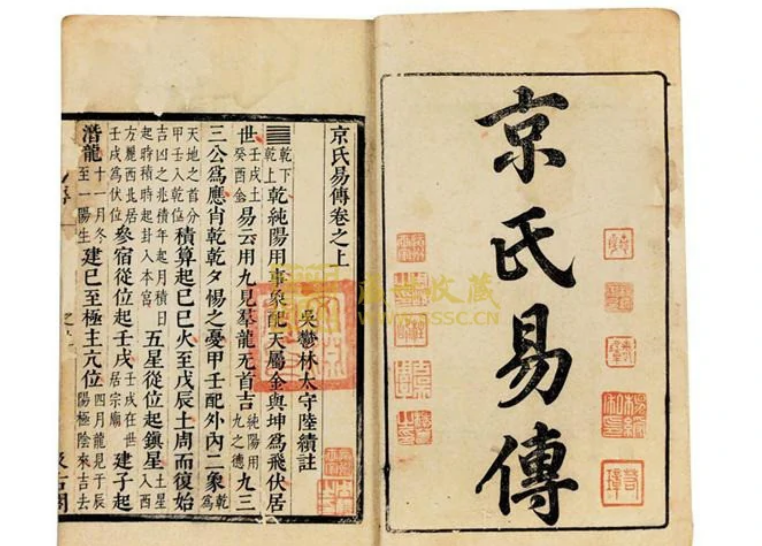 京氏易傳
京氏易傳卷之上
吳鬱林太守陸績註
䷀乾下乾上乾純陽用事象配天屬金與坤爲飛伏居
世壬戌土癸酉金易云用九見羣龍无首吉純陽用九之德九三
三公爲應肖乾乾夕惕之憂甲壬配外內二象乾爲
天地之首分甲壬入乾位積算起己巳火至戊辰土周而復始
吉凶之兆積年起月積日起時積時起卦入本宮五星從位起鎮星土星入西
方麗西北居壬戌爲伏位參宿從位起壬戌壬戌在世居宗廟建子起
潛龍十一月冬至一陽生建巳至極主亢位四月龍見于辰陽極陰來吉去
盛世收藏
WWW.SSSC.CN